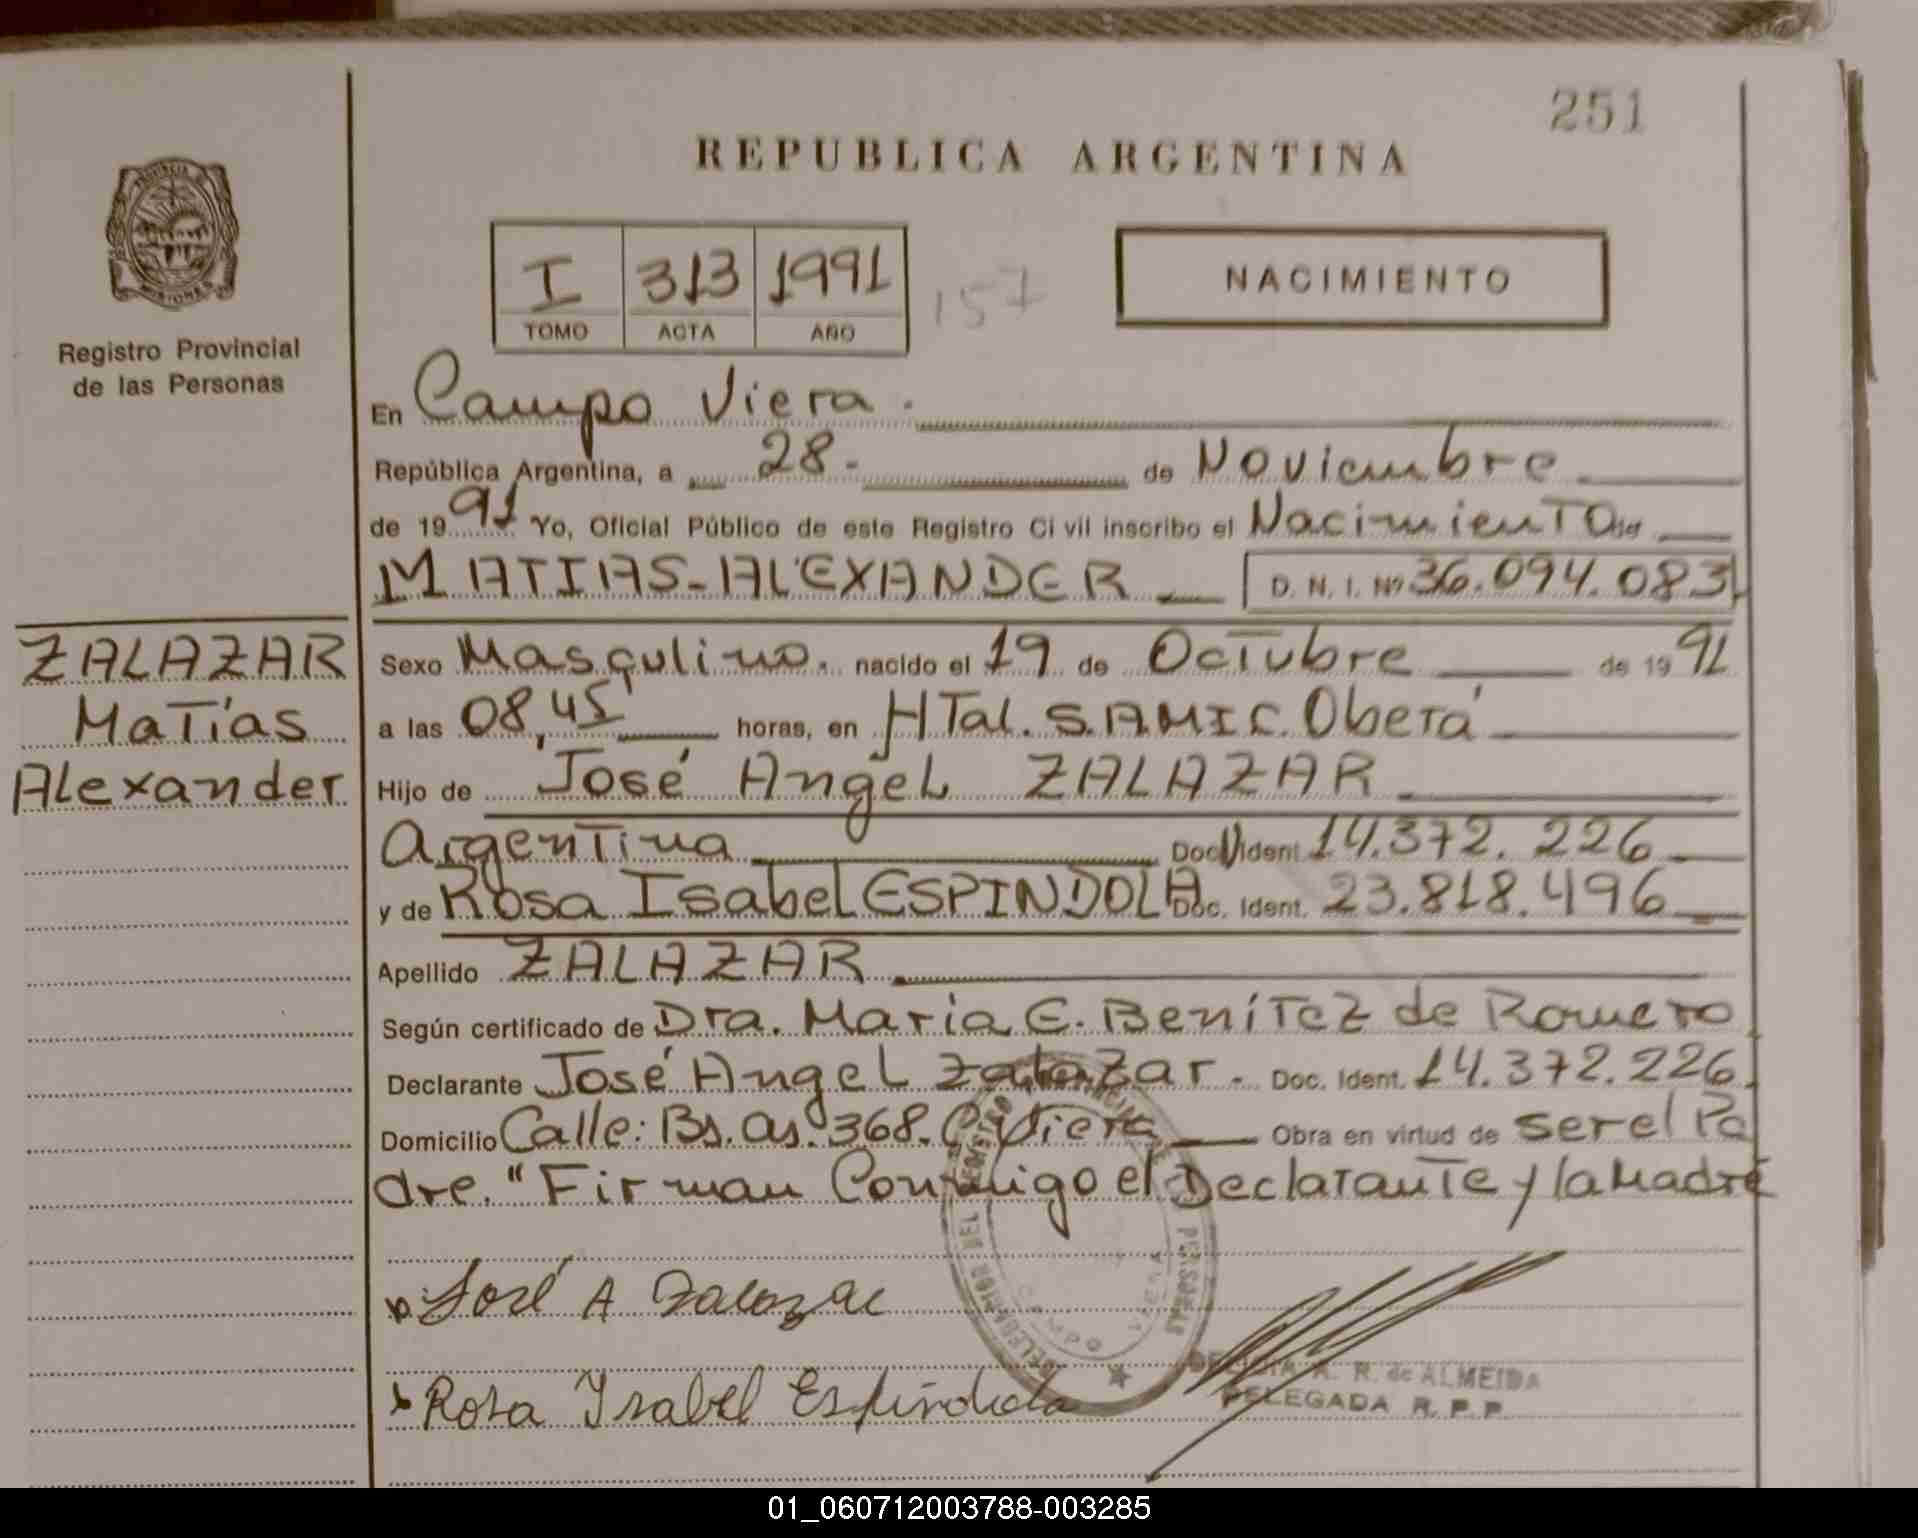 251
REPUBLICA ARGENTINA
I 313 1991
TOMO ACTA AÑO
157
NACIMIENTO
MISIONES
Registro Provincial
de las Personas
En Campo Viera.
República Argentina, a 28- de Noviembre
de 1991 Yo, Oficial Público de este Registro Civil inscribo el Nacimiento de
MATIAS-ALEXANDER D. N. I. Nº 36.094.083
ZALAZAR
Matías
Alexander
Sexo Masculino. nacido el 19 de Octubre de 1991
a las 08,45 horas, en HTal. S.A.M.I.C. Oberá
Hijo de José Angel ZALAZAR
Argentina Doc. Ident. 14.372.226
y de Rosa Isabel ESPINDOLA Doc. Ident. 23.818.496
Apellido ZALAZAR
Según certificado de Dra. María E. Benítez de Romero
Declarante José Angel Zalazar. Doc. Ident. 14.372.226
Domicilio Calle: Bs. as. 368. C. Viera Obra en virtud de ser el Pa
dre. "Firman Conmigo el Declarante y la Madre
José A Zalazar
DELEGADA R. P. P.
R. de ALMEIDA
Rosa Isabel Espindola
01_060712003788-003285